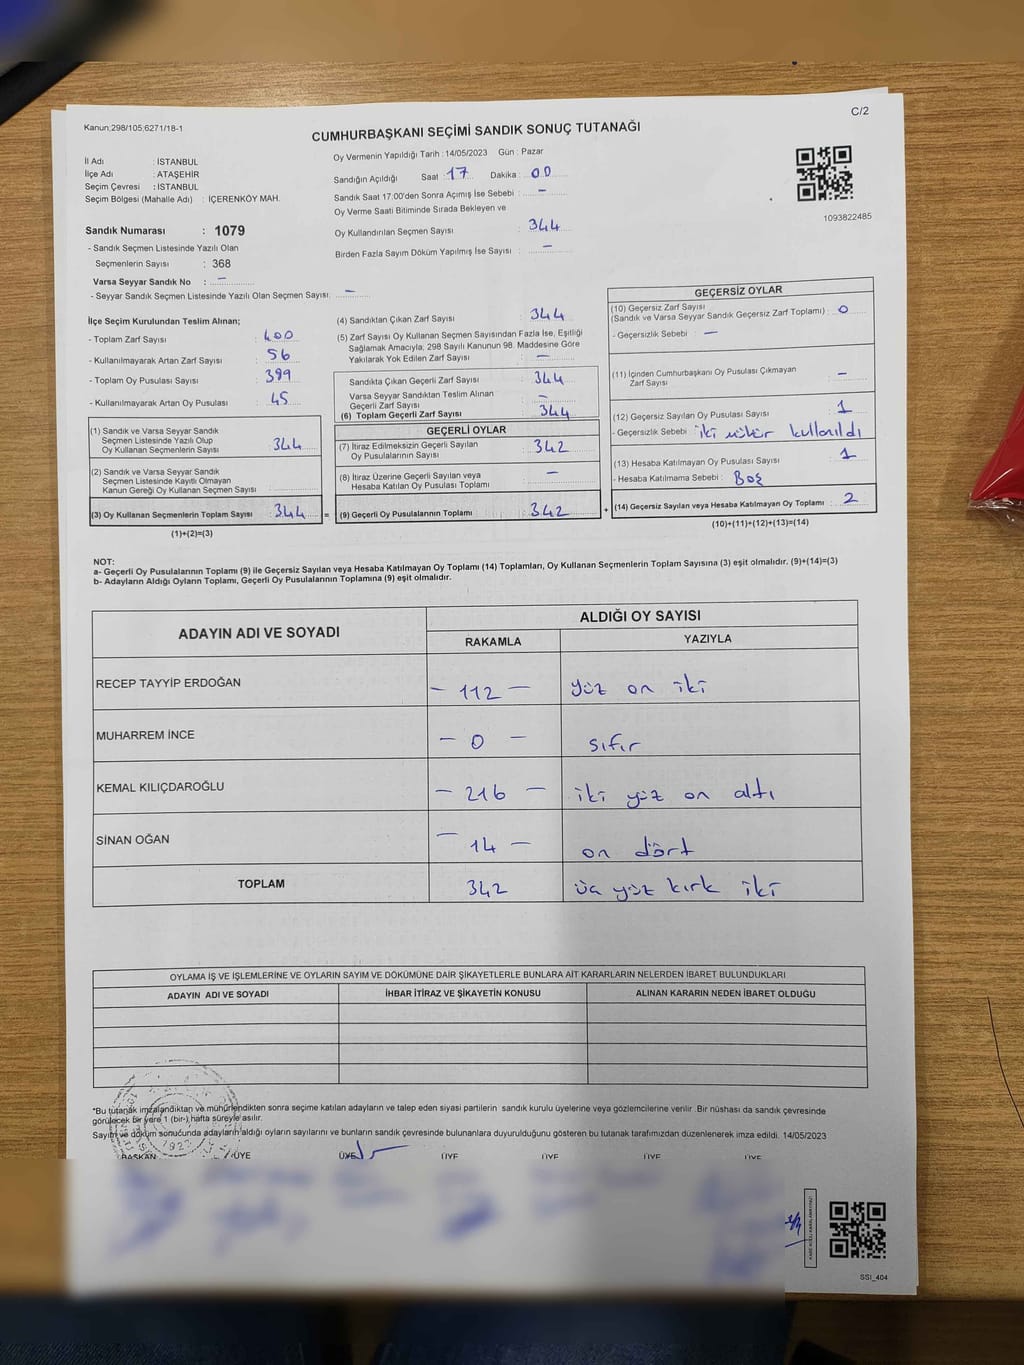 C/2
Kanun;298/105;6271/18-1
CUMHURBAŞKANI SEÇİMİ SANDIK SONUÇ TUTANAĞI
İl Adı : İSTANBUL
İlçe Adı : ATAŞEHİR
Seçim Çevresi : İSTANBUL
Seçim Bölgesi (Mahalle Adı) : İÇERENKÖY MAH.
Sandık Numarası : 1079
- Sandık Seçmen Listesinde Yazılı Olan
Seçmenlerin Sayısı : 368
Varsa Seyyar Sandık No : -
- Seyyar Sandık Seçmen Listesinde Yazılı Olan Seçmen Sayısı: -
Oy Vermenin Yapıldığı Tarih : 14/05/2023 Gün : Pazar
Sandığın Açıldığı Saat : 17 Dakika : 00
Sandık Saat 17:00'den Sonra Açılmış İse Sebebi : -
Oy Verme Saati Bitiminde Sırada Bekleyen ve
Oy Kullandırılan Seçmen Sayısı : 344
Birden Fazla Sayım Döküm Yapılmış İse Sayısı : -
1093822485
İlçe Seçim Kurulundan Teslim Alınan;
- Toplam Zarf Sayısı : 400
- Kullanılmayarak Artan Zarf Sayısı : 56
- Toplam Oy Pusulası Sayısı : 399
- Kullanılmayarak Artan Oy Pusulası : 45
(1) Sandık ve Varsa Seyyar Sandık
Seçmen Listesinde Yazılı Olup
Oy Kullanan Seçmenlerin Sayısı : 344
(2) Sandık ve Varsa Seyyar Sandık
Seçmen Listesinde Kayıtlı Olmayan
Kanun Gereği Oy Kullanan Seçmen Sayısı :
(3) Oy Kullanan Seçmenlerin Toplam Sayısı : 344 =
(1)+(2)=(3)
(4) Sandıktan Çıkan Zarf Sayısı : 344
(5) Zarf Sayısı Oy Kullanan Seçmen Sayısından Fazla İse, Eşitliği
Sağlamak Amacıyla; 298 Sayılı Kanunun 98. Maddesine Göre
Yakılarak Yok Edilen Zarf Sayısı : -
Sandıkta Çıkan Geçerli Zarf Sayısı : 344
Varsa Seyyar Sandıktan Teslim Alınan
Geçerli Zarf Sayısı : -
(6) Toplam Geçerli Zarf Sayısı : 344
GEÇERLİ OYLAR
(7) İtiraz Edilmeksizin Geçerli Sayılan
Oy Pusulasının Sayısı : 342
(8) İtiraz Üzerine Geçerli Sayılan veya
Hesaba Katılan Oy Pusulası Toplamı : -
(9) Geçerli Oy Pusulalarının Toplamı : 342 +
GEÇERSİZ OYLAR
(10) Geçersiz Zarf Sayısı
(Sandık ve Varsa Seyyar Sandık Geçersiz Zarf Toplamı) : 0
- Geçersizlik Sebebi : -
(11) İçinden Cumhurbaşkanı Oy Pusulası Çıkmayan
Zarf Sayısı : -
(12) Geçersiz Sayılan Oy Pusulası Sayısı : 1
- Geçersizlik Sebebi : iki mühür kullanıldı
(13) Hesaba Katılmayan Oy Pusulası Sayısı : 1
- Hesaba Katılmama Sebebi : Boş
(14) Geçersiz Sayılan veya Hesaba Katılmayan Oy Toplamı : 2
(10)+(11)+(12)+(13)=(14)
NOT:
a- Geçerli Oy Pusulalarının Toplamı (9) ile Geçersiz Sayılan veya Hesaba Katılmayan Oy Toplamı (14) Toplamları, Oy Kullanan Seçmenlerin Toplam Sayısına (3) eşit olmalıdır. (9)+(14)=(3)
b- Adayların Aldığı Oyların Toplamı, Geçerli Oy Pusulalarının Toplamına (9) eşit olmalıdır.
ADAYIN ADI VE SOYADI
ALDIĞI OY SAYISI
RAKAMLA YAZIYLA
RECEP TAYYİP ERDOĞAN - 112 - yüz on iki
MUHARREM İNCE - 0 - sıfır
KEMAL KILIÇDAROĞLU - 216 - iki yüz on altı
SİNAN OĞAN - 14 - on dört
TOPLAM 342 üç yüz kırk iki
OYLAMA İŞ VE İŞLEMLERİNE VE OYLARIN SAYIM VE DÖKÜMÜNE DAİR ŞİKAYETLERLE BUNLARA AİT KARARLARIN NELERDEN İBARET BULUNDUKLARI
ADAYIN ADI VE SOYADI İHBAR İTİRAZ VE ŞİKAYETİN KONUSU ALINAN KARARIN NEDEN İBARET OLDUĞU
*Bu tutanak imzalandıktan ve mühürlendikten sonra seçime katılan adayların ve talep eden siyasi partilerin sandık kurulu üyelerine veya gözlemcilerine verilir. Bir nüshası da sandık çevresinde
görülecek bir yere 1 (bir-) hafta süreyle asılır.
Sayım ve döküm sonucunda adayların aldığı oyların sayılarını ve bunların sandık çevresinde bulunanlara duyurulduğunu gösteren bu tutanak tarafımızdan düzenlenerek imza edildi. 14/05/2023
BAŞKAN ÜYE ÜYE ÜYE ÜYE ÜYE ÜYE
SSI_404